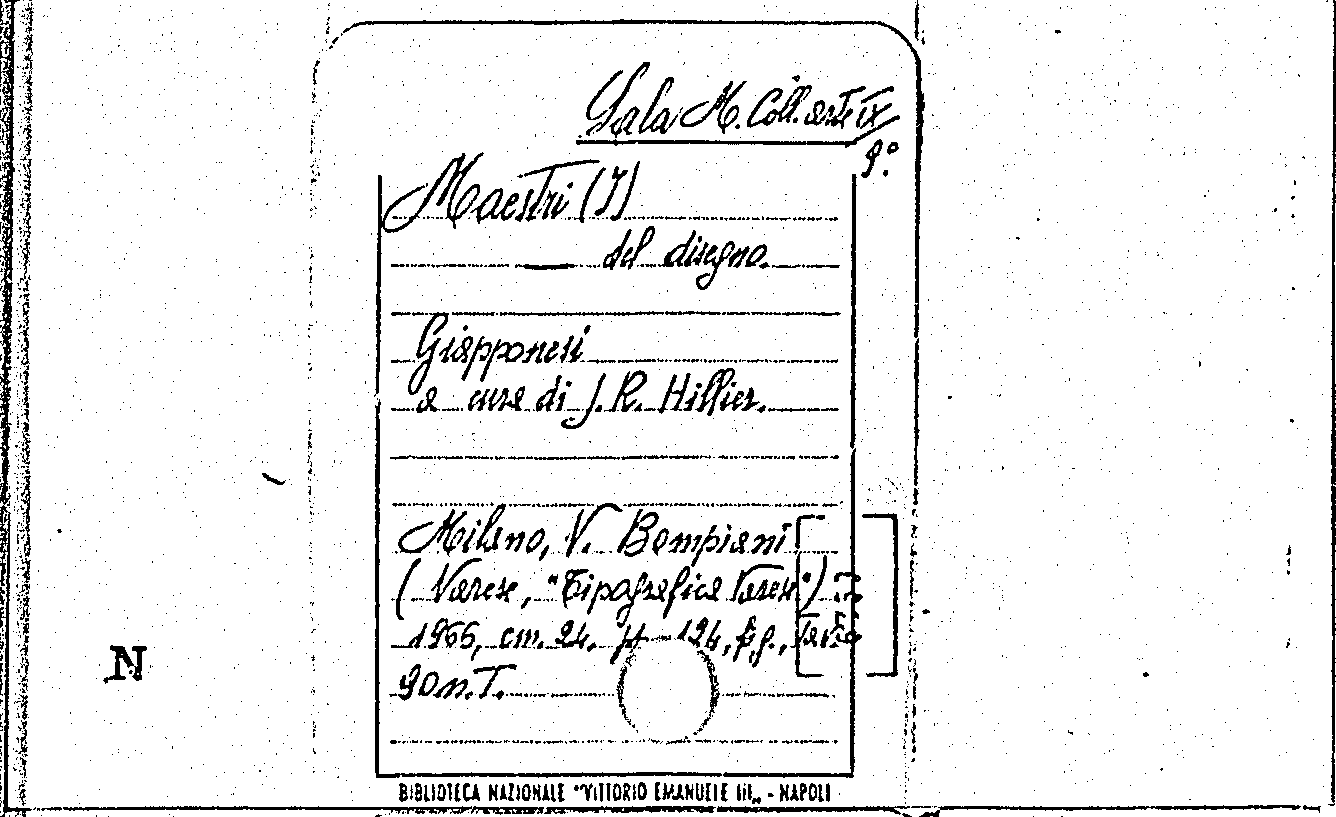 Sala M. Coll. arte IX
9°.
Maestri (I)
— del disegno.
Giapponesi
a cura di J. R. Hillier.
Milano, V. Bompiani
(Varese, "Tipografica Varese")
1966, cm. 24. pp 124, fig.,
90 n.T.
N
BIBLIOTECA NAZIONALE "VITTORIO EMANUELE III„ - NAPOLI